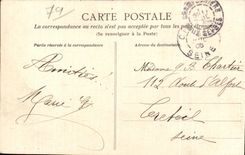 79
CARTE POSTALE
La correspondance au recto n'est pas acceptée par tous les pays étrangers
(Se renseigner à la Poste)
Partie réservée à la correspondance
Adresse du Destinataire
SEINE
Amitiés
Marie
Madame B. Chartier
112 Route
Creteil
Seine